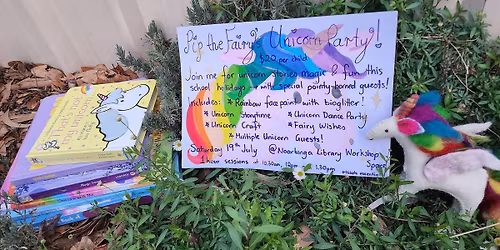 Pip the Fairy's Unicorn Party!
$20 per child
Join me for unicorn stories magic & fun this
school holidays with special pointy-horned guests!
Includes: * Rainbow face paint with bioglitter!
* Unicorn Storytime * Unicorn Dance Party
* Unicorn Craft * Fairy Wishes
* Multiple Unicorn Guests!
Saturday 19th July @ Noarlunga Library Workshop
Space
1 hour sessions at 10.30am, 12pm 1.30pm